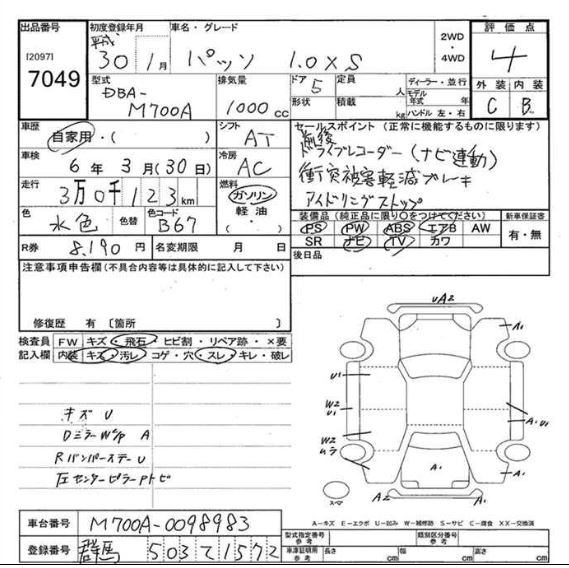 出品番号
[2097]
7049
初度登録年月
平成
30年1月
車名・グレード
パッソ 1.0 X S
2WD
・
4WD
評価点
4
型式
DBA-
M700A
排気量
1000 cc
ドア 5
定員 人
形状
積載 kg
ディーラー・並行
モデル年式 年
ハンドル 左・右
外装 内装
C B
車歴
自家用・( )
シフト
AT
車検
6年3月(30日)
冷房
AC
走行
3万0千123km
燃料
ガソリン
軽油
・( )
色
水色
色替
色コード
B67
R券
8,190円
名変期限 月 日
セールスポイント (正常に機能するものに限ります)
前後
ドライブレコーダー(ナビ連動)
衝突被害軽減ブレーキ
アイドリングストップ
装備品 (純正品に限り○をつけてください)
PS PW ABS エアB AW
SR ナビ TV カワ
新車保証書
有・無
後日品
注意事項申告欄(不具合内容等は具体的に記入して下さい)
修復歴 有 〔箇所 〕
検査員 FW キズ・飛石・ヒビ割・リペア跡・×要
記入欄 内装 キズ・汚レ・コゲ・穴・スレ・キレ・破レ
キズ U
Dミラー A
RバンパーステーU
左センターピラー
UA2
A1
U1
W2
U1
A1 U1
W2
A1
A1
A2
スペア
A-キズ E-エクボ U-凹み W-補修跡 S-サビ C-腐食 XX-交換済
車台番号
M700A-0098983
登録番号
群馬 503 て 1572
型式指定番号
参考
類別区分番号
参考
車庫証明用
参考
長さ cm
幅 cm
高さ cm